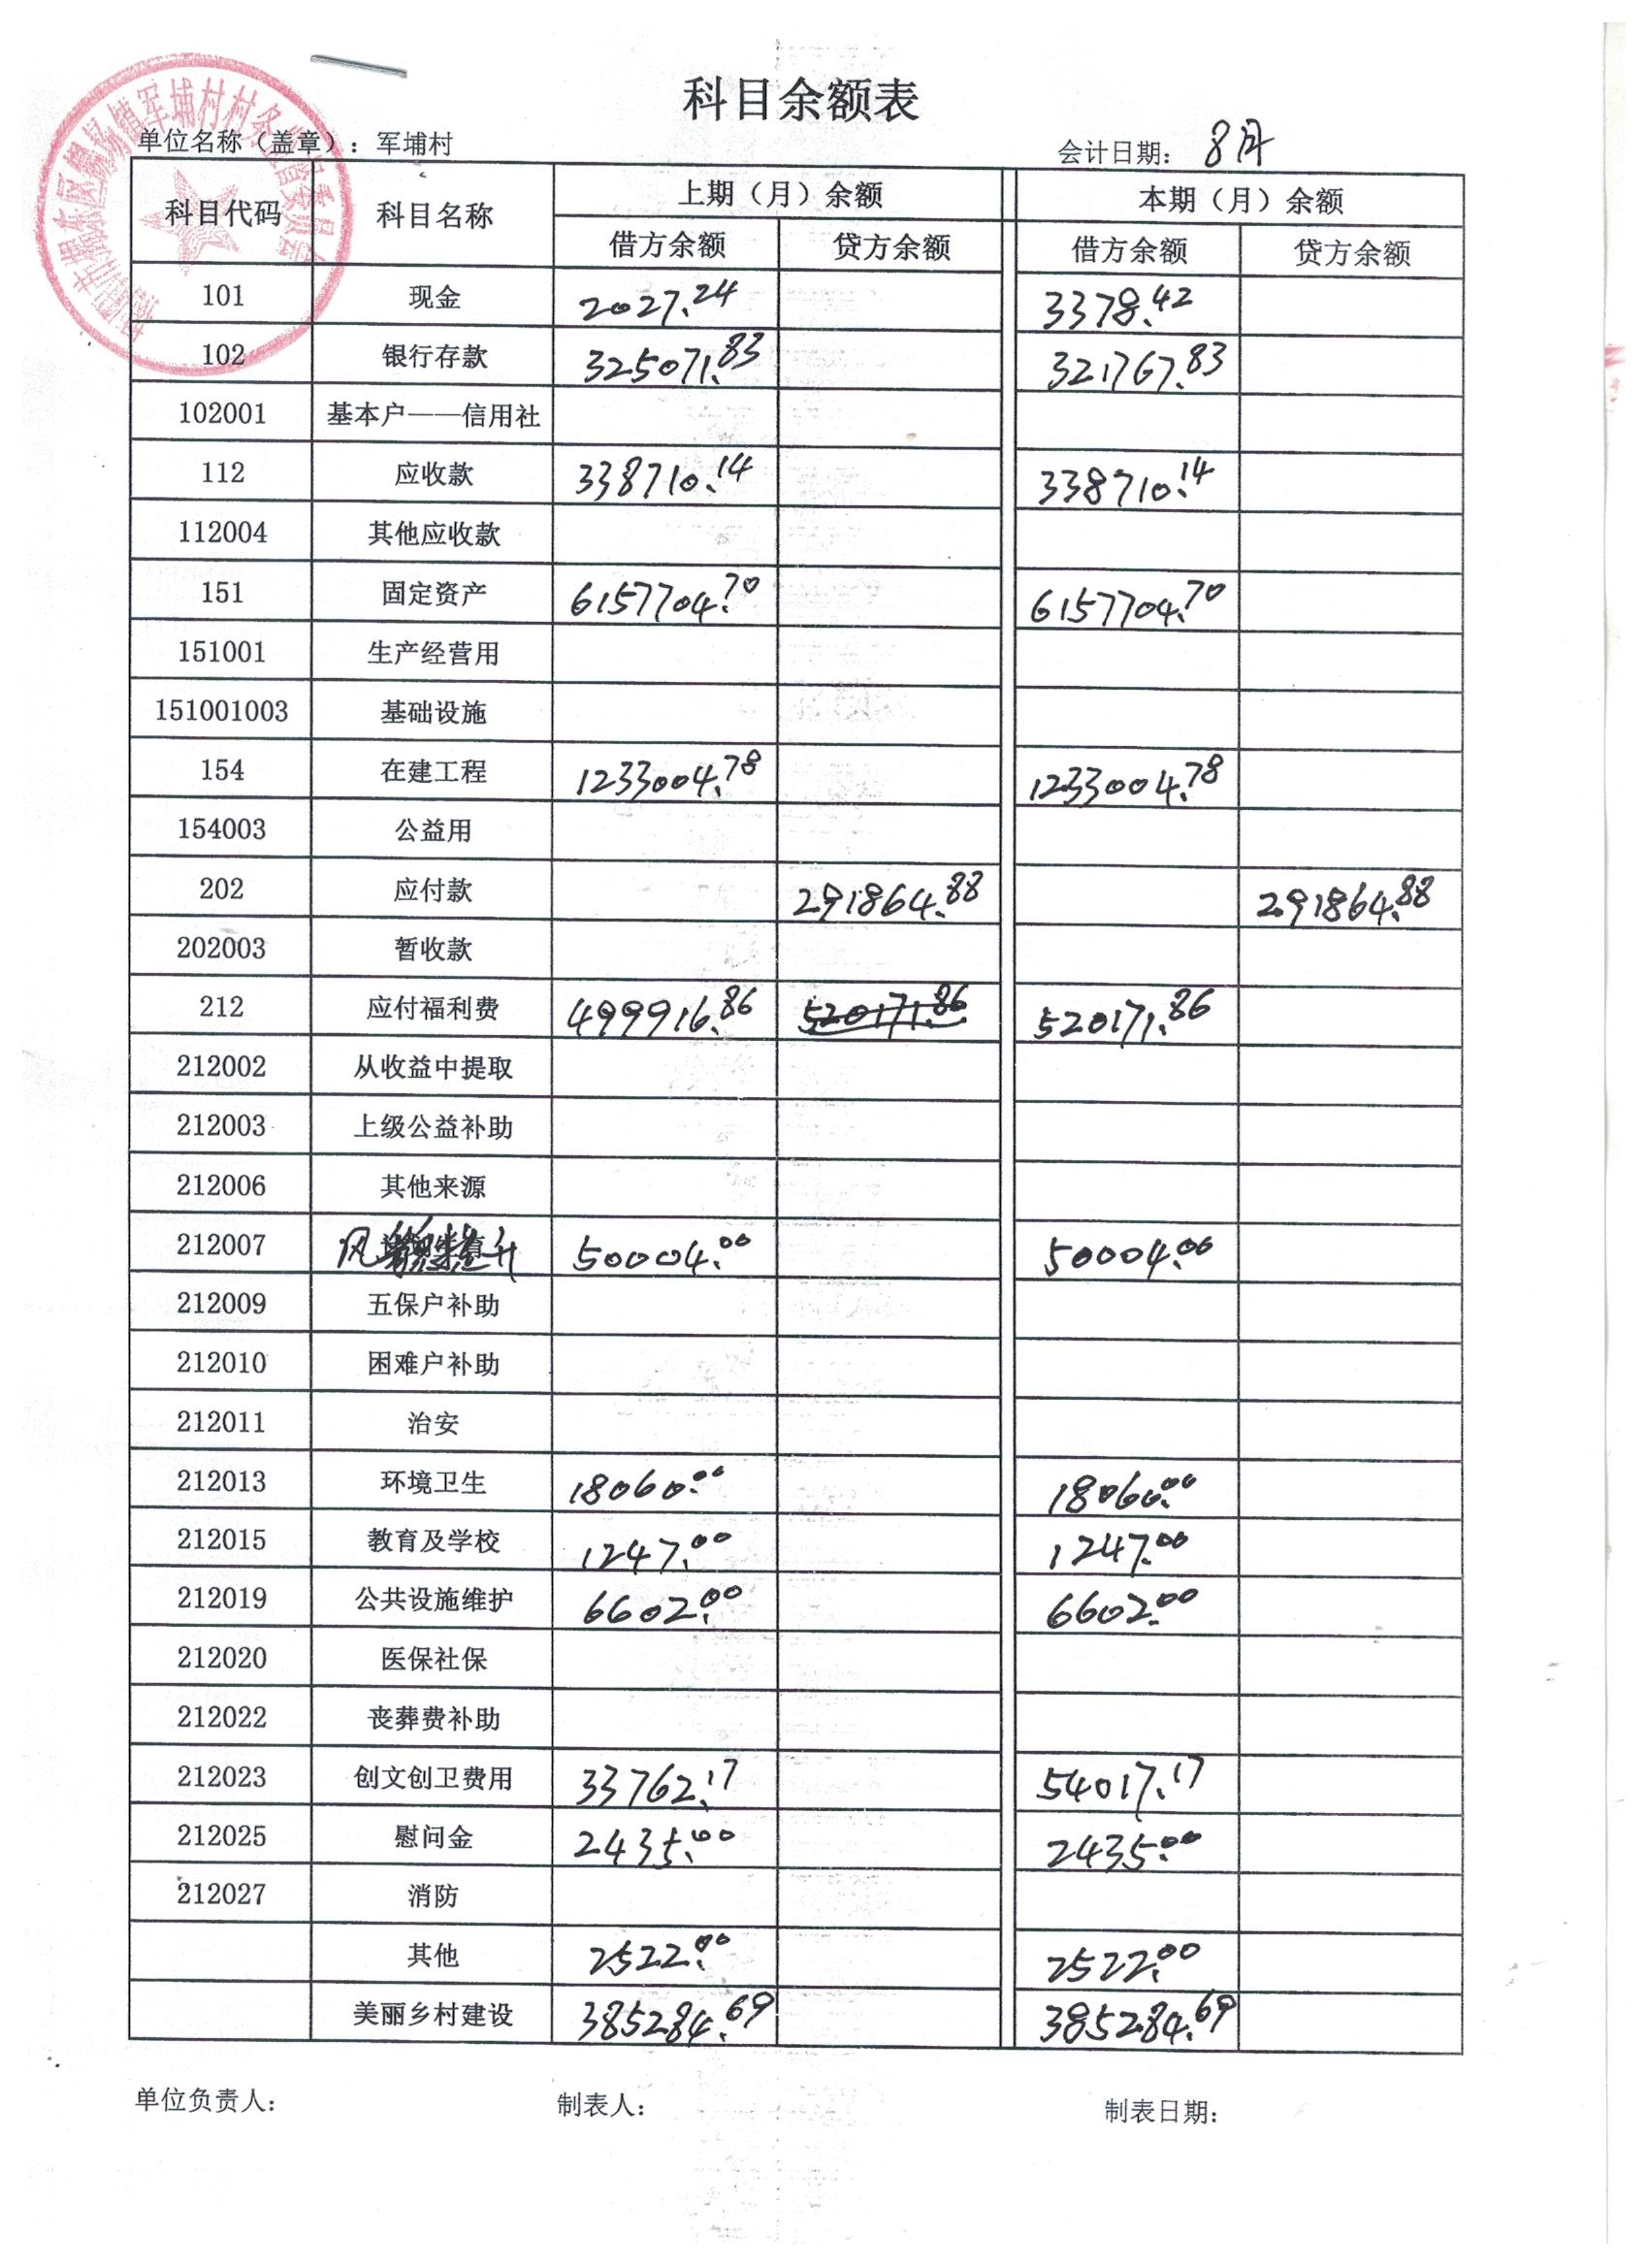 科目余额表
单位名称（盖章）：军埔村 会计日期： 8月
科目代码 科目名称 上期（月）余额 本期（月）余额
借方余额 贷方余额 借方余额 贷方余额
101 现金 2027.24 3378.42
102 银行存款 325071.83 321767.83
102001 基本户——信用社
112 应收款 338710.14 338710.14
112004 其他应收款
151 固定资产 6157704.70 6157704.70
151001 生产经营用
151001003 基础设施
154 在建工程 1233004.78 1233004.78
154003 公益用
202 应付款 291864.88 291864.88
202003 暂收款
212 应付福利费 499916.86 520171.86 520171.86
212002 从收益中提取
212003 上级公益补助
212006 其他来源
212007 风貌提升 50004.00 50004.00
212009 五保户补助
212010 困难户补助
212011 治安
212013 环境卫生 18060.00 18060.00
212015 教育及学校 1247.00 1247.00
212019 公共设施维护 6602.00 6602.00
212020 医保社保
212022 丧葬费补助
212023 创文创卫费用 33762.17 54017.17
212025 慰问金 2435.00 2435.00
212027 消防
其他 2522.00 2522.00
美丽乡村建设 385284.69 385284.69
单位负责人： 制表人： 制表日期：